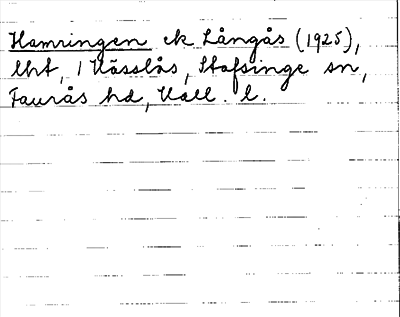 Hamringen ek Långås (1925),
lht, 1 Kässlås, Stafsinge sn,
Faurås hd, Hall. l.